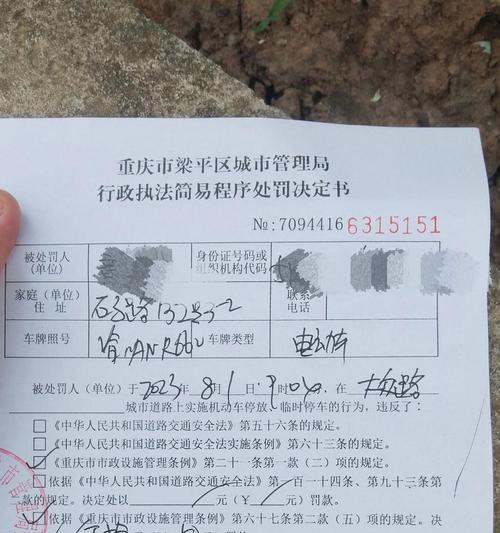 重庆市梁平区城市管理局
行政执法简易程序处罚决定书
№:7094416 6315151
被处罚人
(单位)
身份证号码或
组织机构代码
家庭(单位)
住址
联系
电话
车牌照号
车牌类型
被处罚人(单位)于2023年8月1日9时0分,在
城市道路上实施机动车停放、临时停车的行为,违反了:
《中华人民共和国道路交通安全法》第五十六条的规定。
《中华人民共和国道路交通安全法实施条例》第六十三条的规定。
《重庆市市政设施管理条例》第二十一条第一款(二)项的规定。
依据《中华人民共和国道路交通安全法》第一百一十四条、第九十三条第
款的规定。决定处以 元(¥ 元)罚款。
依据《重庆市市政设施管理条例》第六十七条第二款(五)项的规定。决